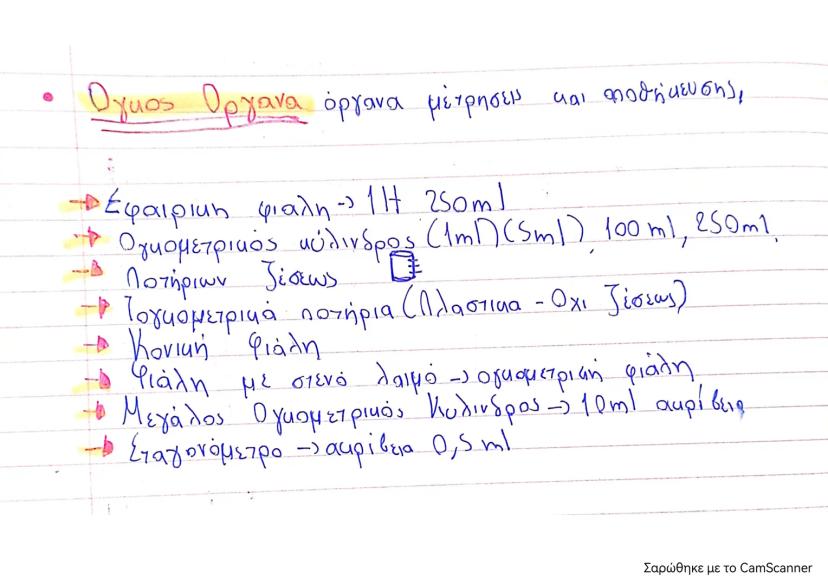 • Όγκος Όργανα όργανα μέτρησεις και αποθήκευσης,
→ Σφαιρική φιαλη → 1H 250ml
→ Ογκομετρικός κύλινδρος (1ml) (5ml), 100 ml, 250ml,
→ Ποτήριων ζέσεως
→ Ογκομετρικά ποτήρια (Πλαστικα - Οχι ζέσεως)
→ Κονική Φιάλη
→ Φιάλη με στενό λαιμό → ογκομετρική φιάλη
→ Μεγάλος Ογκομετρικός Κυλινδρος → 10ml ακρίβεια
→ Σταγονόμετρο → ακρίβεια 0,5 ml
Σαρώθηκε με το CamScanner